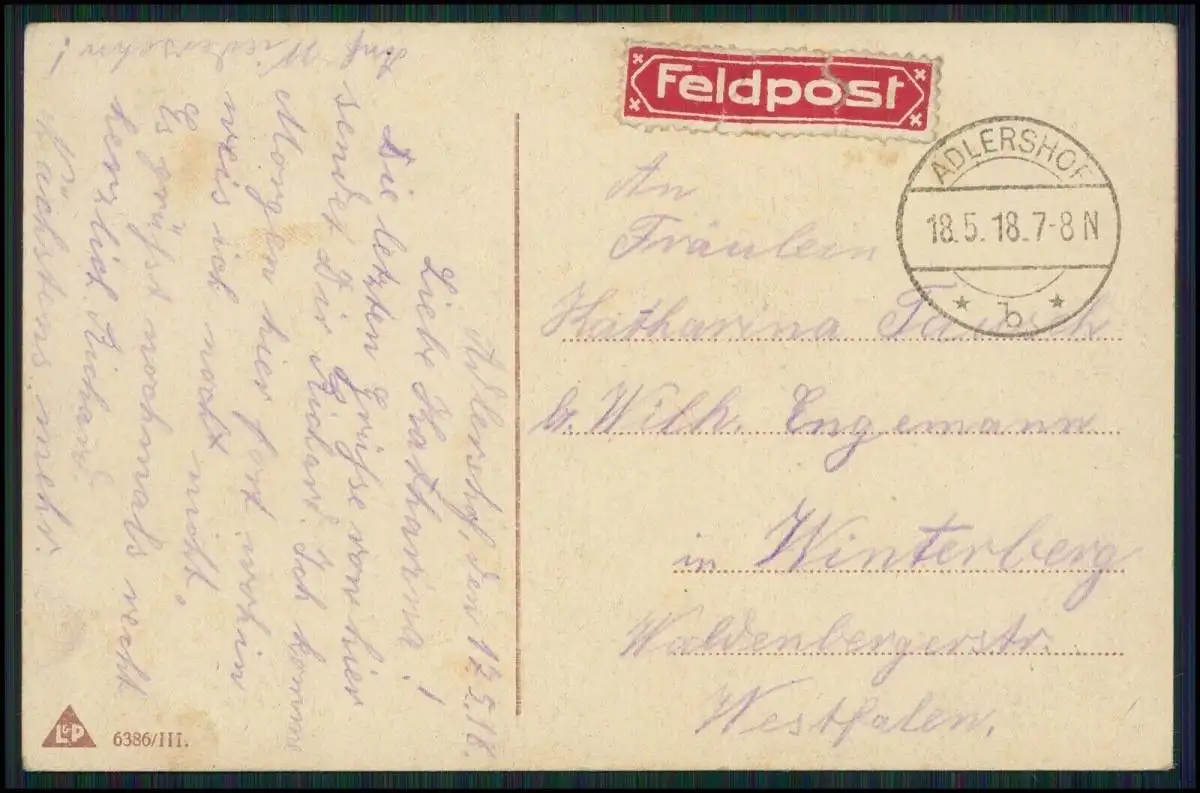 Adlershof, den 17.5.18.
Liebe Katharina!
Die letzten Grüsse von hier
sendet Dir Richard. Ich komme
Morgen hier fort wohin
weis ich noch nicht.
Es grüsst nochmals recht
herzlich Richard
Nächstens mehr.
Auf
Wiedersehn!
Feldpost
ADLERSHOF
18.5.18.7-8N
* b *
An
Fräulein
Katharina
b. Wilh. Engemann
in Winterberg
Waldenbergerstr.
Westfalen.
L&P
6386/III.